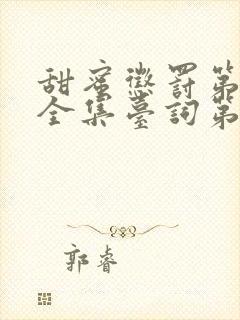 甜蜜懲罰第
全集臺詞第
郭睿